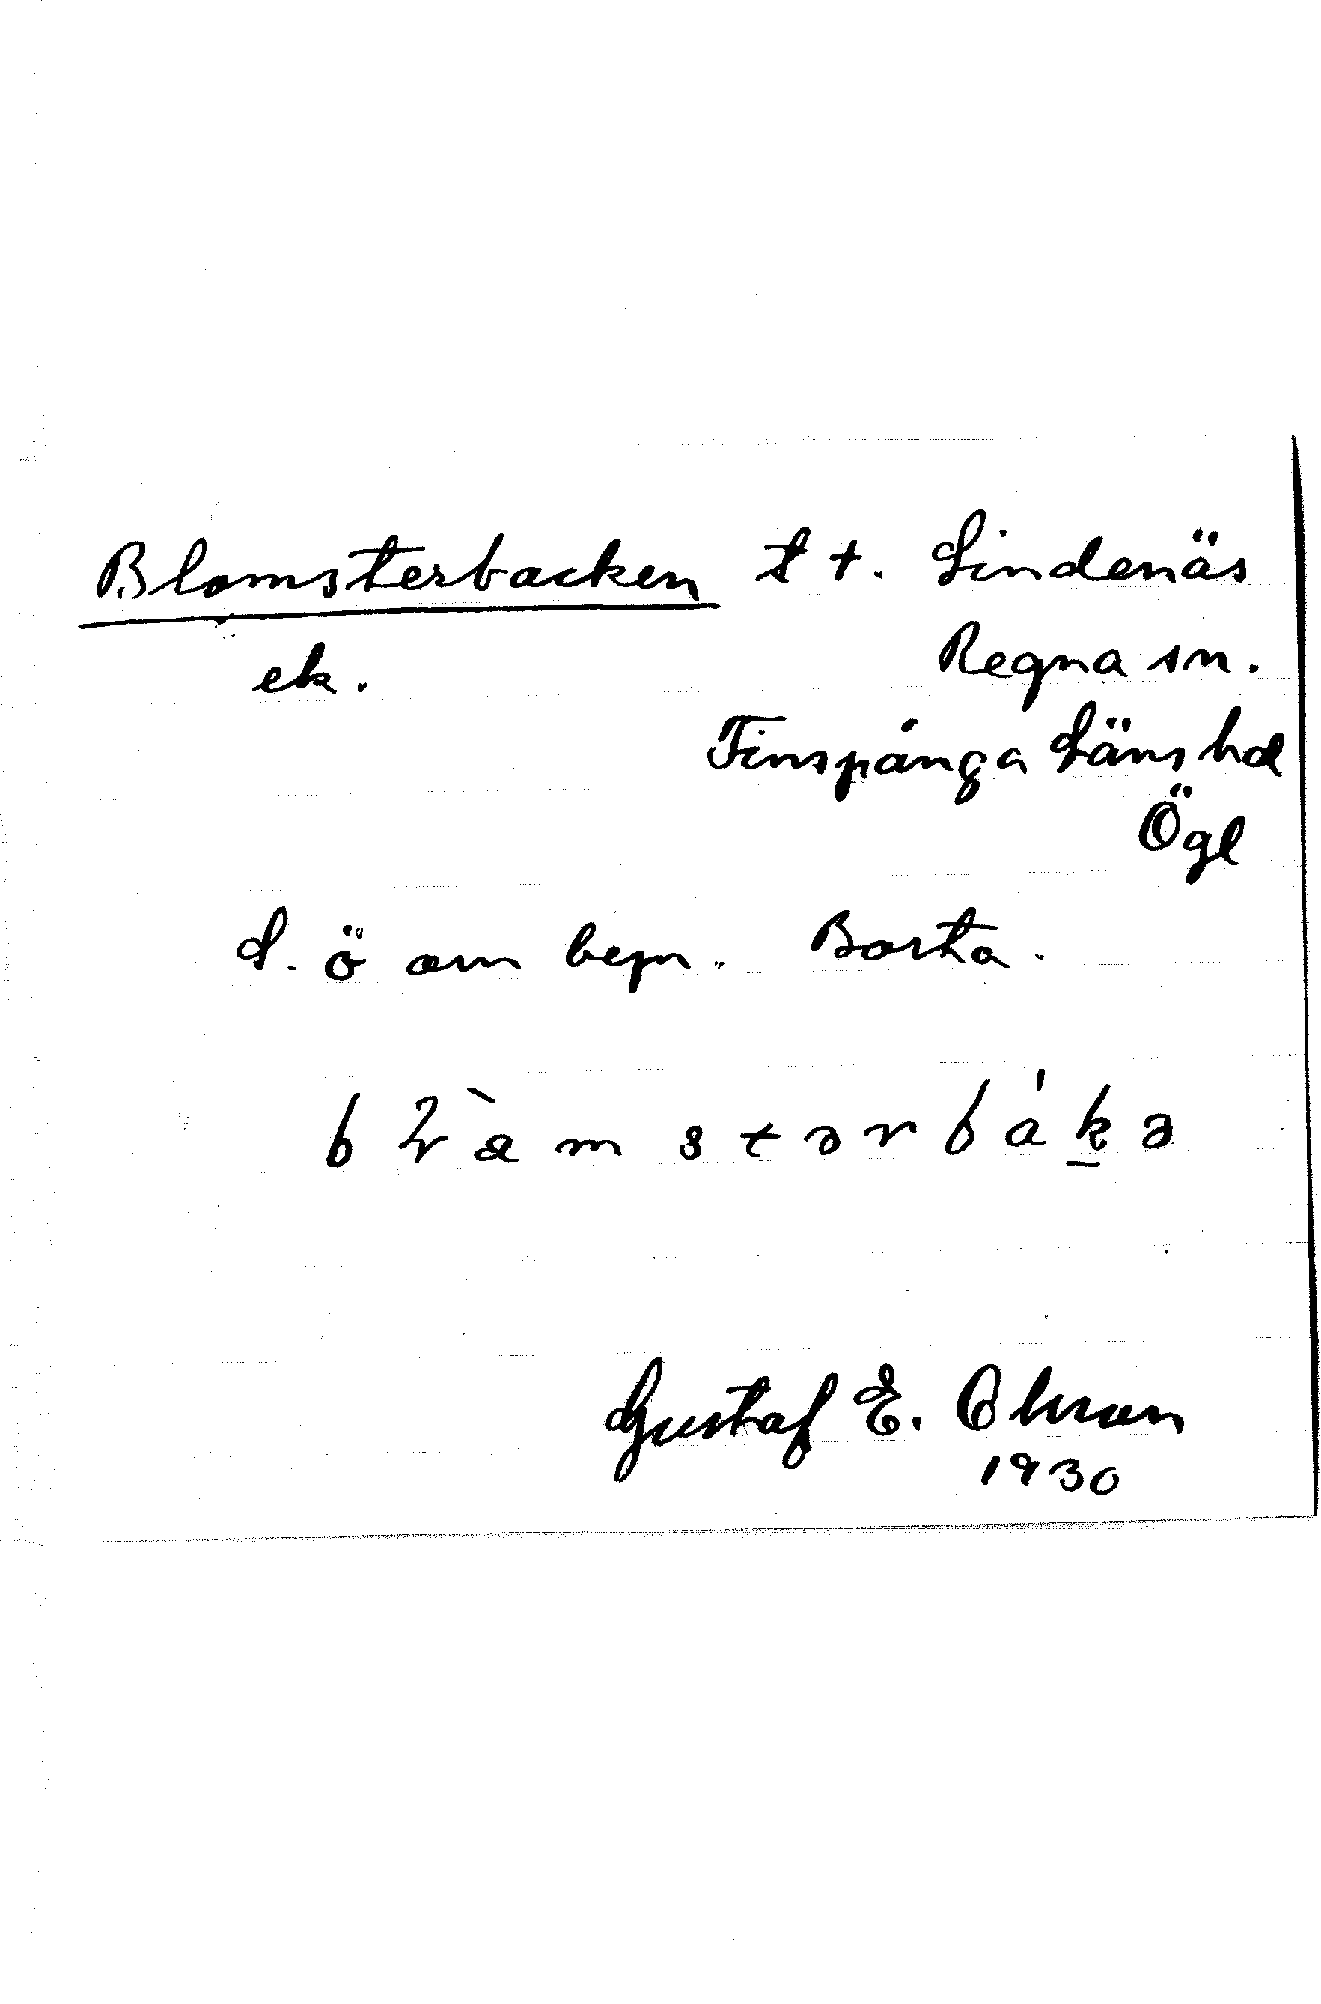 Blomsterbacken t t. Lindenäs
ek. Regna sn.
Finspånga Läns hd
Ögl
L. ö om bepn. Borta.
Gustaf E. Olsson
1930